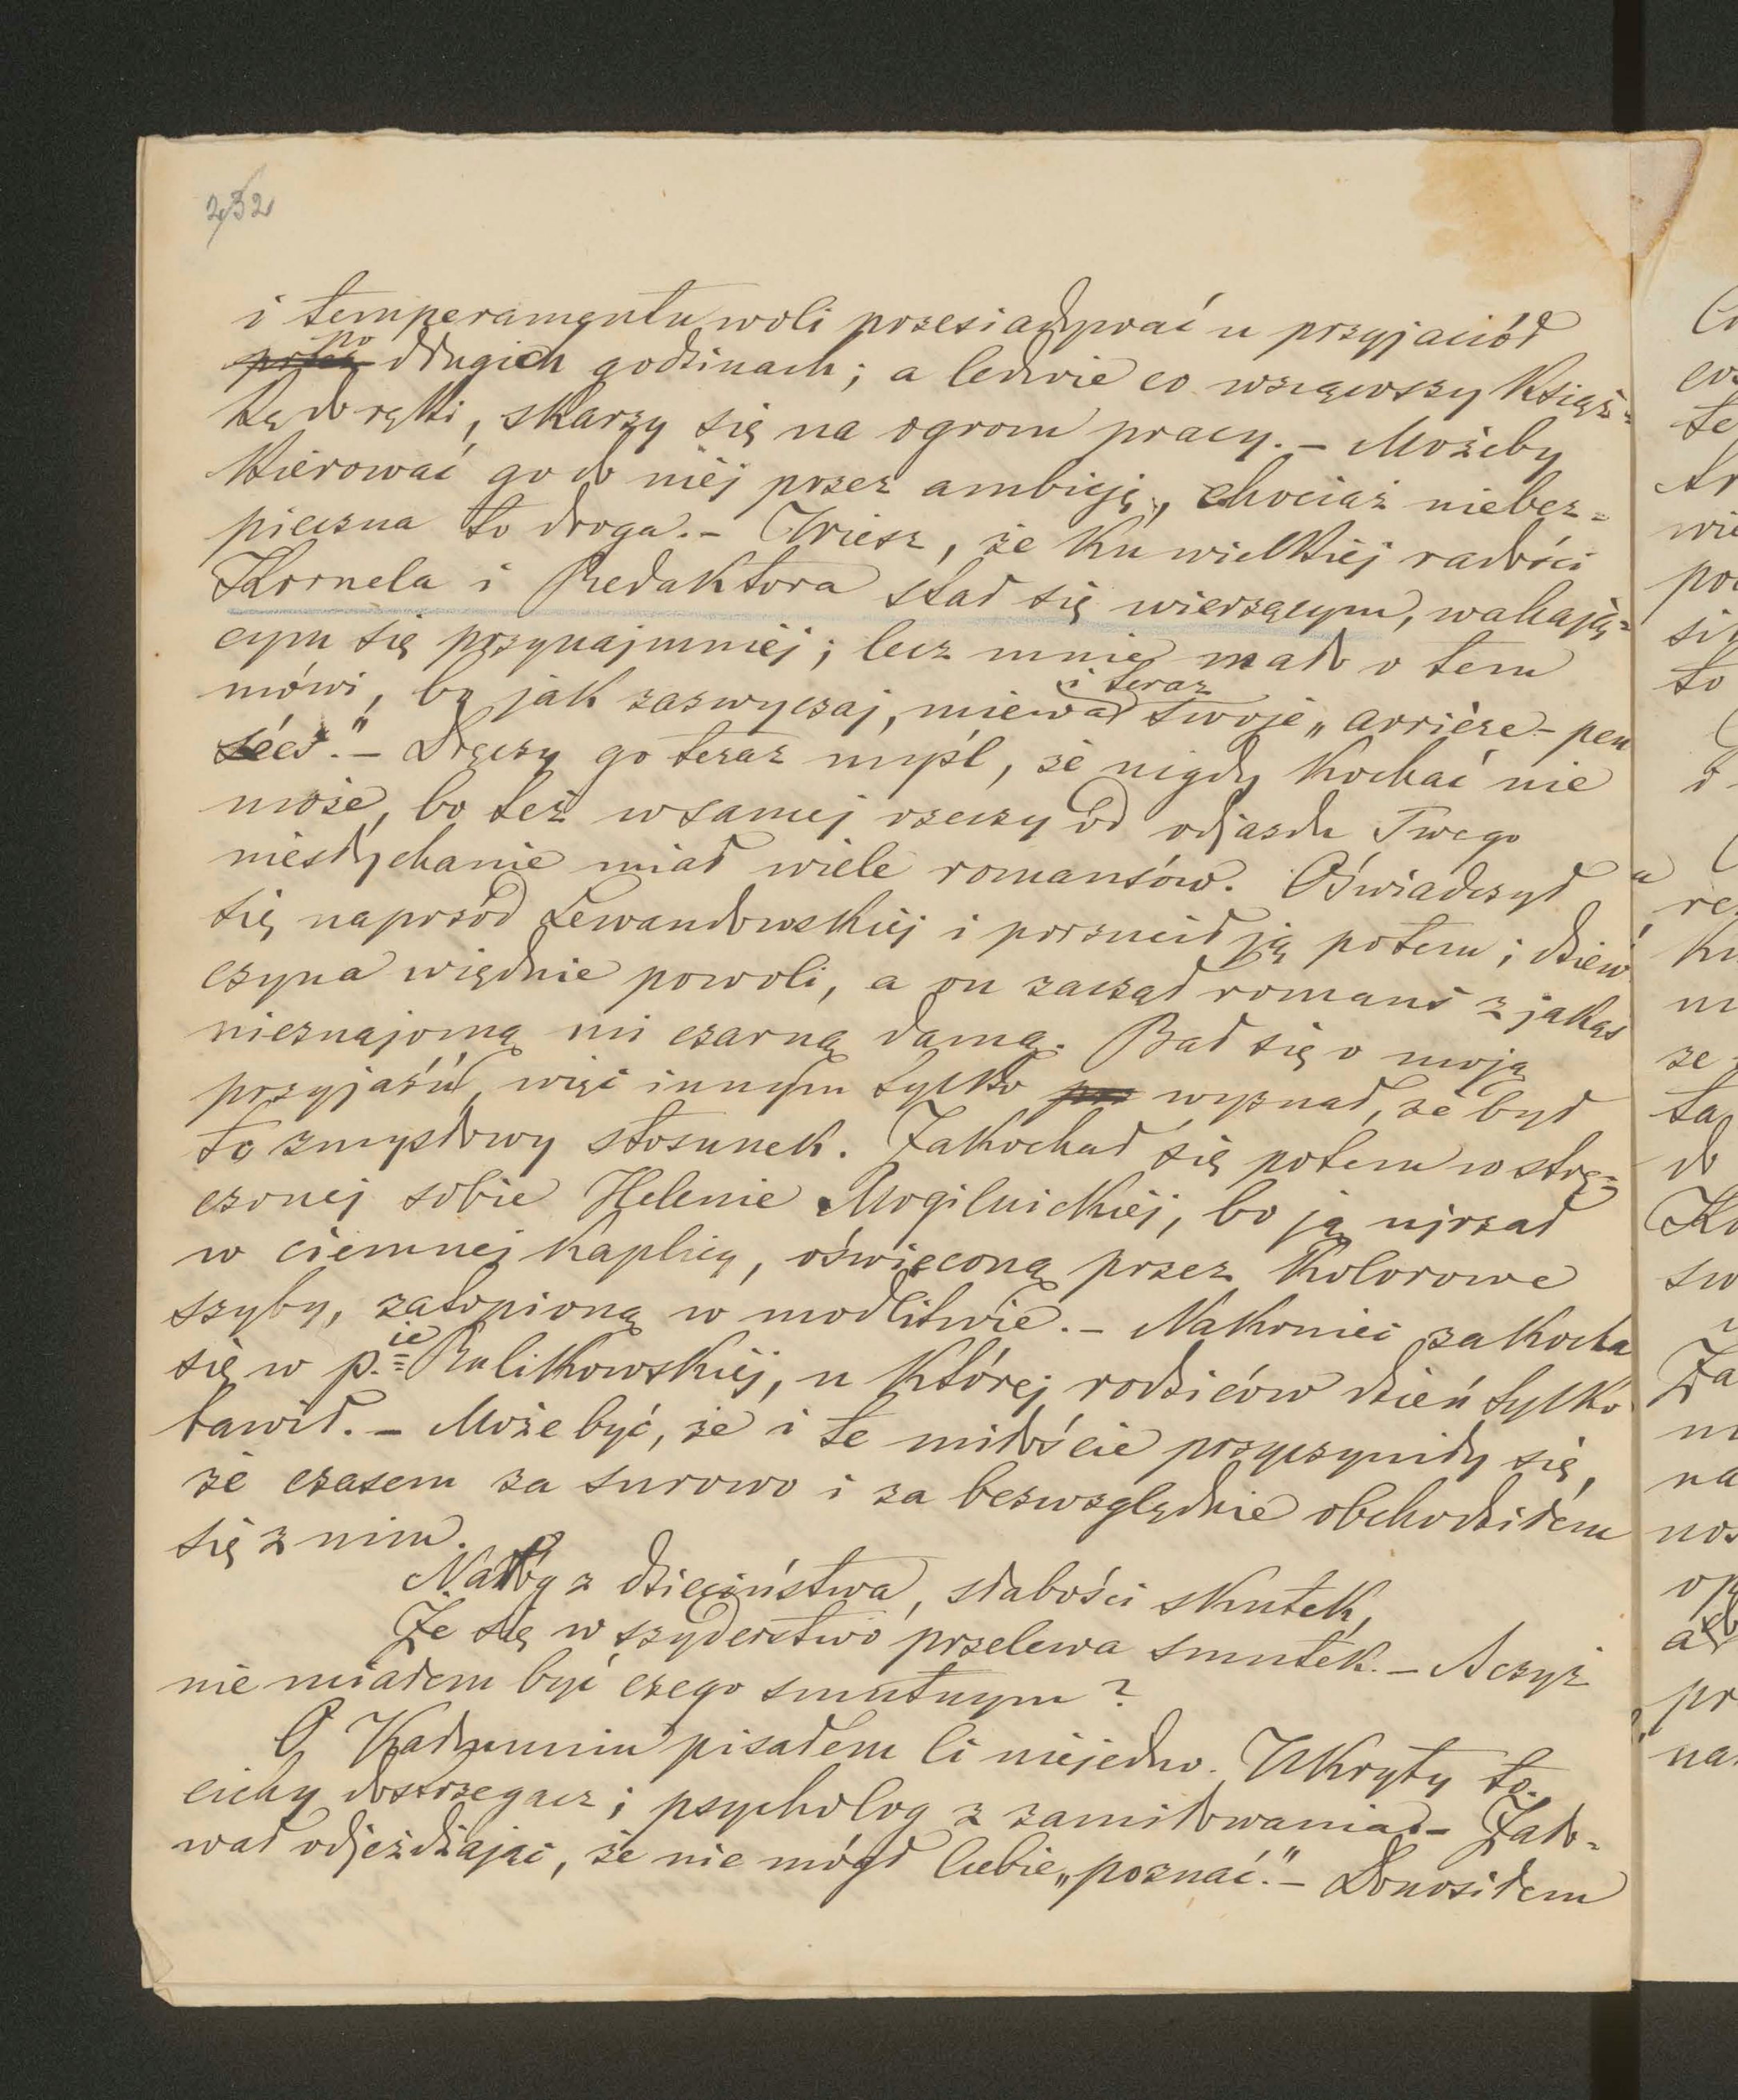 232
i temperamentu woli przesiadywać u przyjaciół
po długich godzinach; a ledwie co wziąwszy książ=
kę do ręki, skarży się na ogrom pracy. – Możeby
kierować go do niéj przez ambicję, chociaż niebez=
pieczna to droga. – Wiesz, że ku wielkiéj radości
Kornela i Redaktora stał się wierzącym, wahają=
cym się przynajmniéj; lecz mnie mało o tem
mówi, bo jak zazwyczaj, miewał i teraz swoje „arrière-pen
sées." – Dręczy go teraz myśl, że nigdy kochać nie
może, bo też w samej rzeczy od odjazdu Twego
niesłychanie miał wiele romansów. Oświadczył
się naprzód Lewandowskiéj i porzucił ją potem; dziew
czyna więdnie powoli, a on zaczął romans z jakąś
nieznajomą mi czarną damą. Bał się o moją
przyjaźń, więc innym tylko wyznał, że był
to zmysłowy stosunek. Zakochał się potem w strę=
czonej sobie Helenie Mogilnickiéj, bo ją ujrzał
w ciemnej kaplicy, oświęconą przez kolorowe
szyby, zatopioną w modlitwie. – Nakoniec zakocha
się w p.ie Rulikowskiéj, u której rodziców dzień tylko
bawił. – Może być, że i te miłoście przyczyniły się,
że czasem za surowo i za bezwzględnie obchodziłem
się z nim.
Nałóg z dzieciństwa, słabości skutek,
Że się w szyderstwo przelewa smutek. – A czyż
nie miałem być czego smutnym?
O Kadmuniu pisałem Ci niejedno. Ukryty to,
cichy dostrzegacz i psycholog z zamiłowania. – Żało=
wał odjeżdżając, że nie mógł Ciebie „poznać." – Donosiłem